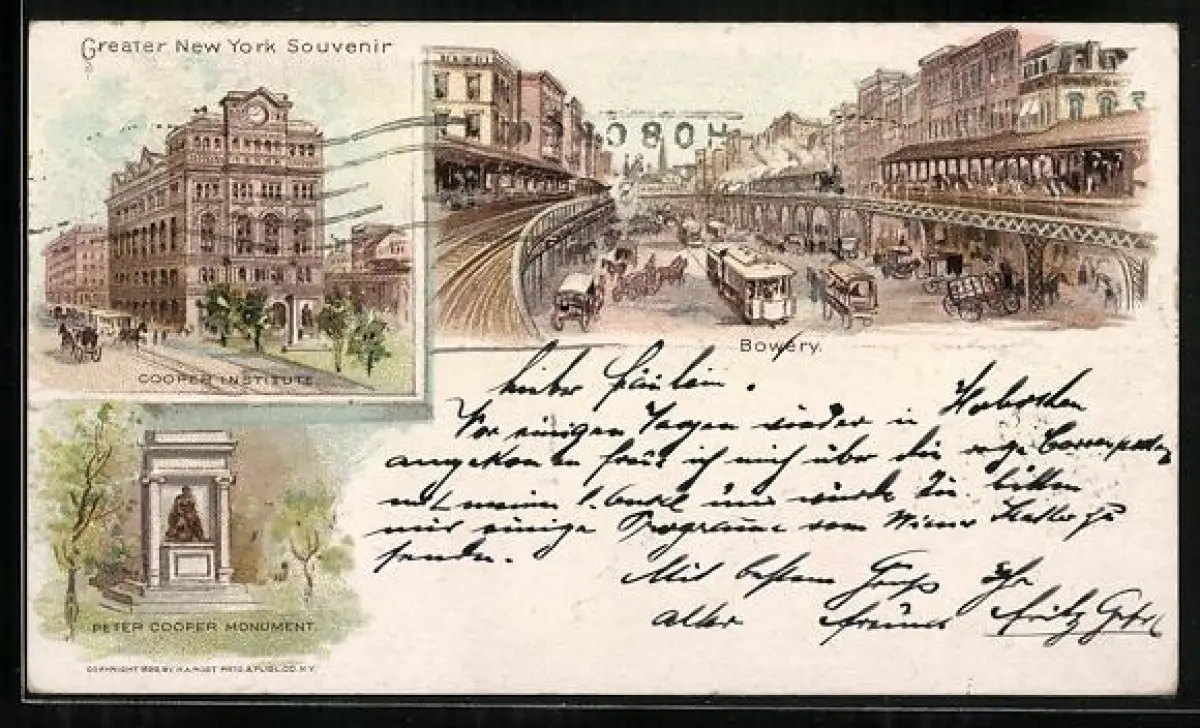 Greater New York Souvenir
HOBOKEN
COOPER INSTITUTE
Bowery.
PETER COOPER MONUMENT.
COPYRIGHT BY H.A. ROST PRTG. & PUBL. CO. N.Y.
Liebes Fräulein.
Vor einigen Tagen wieder in Hoboken
angekommen freut ich mich über die rege Correspondenz
mit meinem und würde Sie bitten
mir einige Programme vom Wiener zu
senden.
Mit bestem Gruß Ihr
alter Freund Fritz